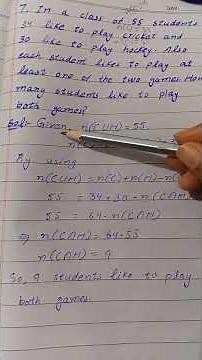 7. In a class of 55 students
34 like to play cricket and
30 like to play hockey. Also
each student likes to play at
least one of the two games. How
many students like to play
both games?
Sol:- Given, n(CUH) = 55
By using
n(CUH) = n(C) + n(H) - n(
55 = 34 + 30 - n(C∩H)
55 = 64 - n(C∩H)
⇒ n(C∩H) = 64 - 55
n(C∩H) = 9
So, 9 students like to play
both games.